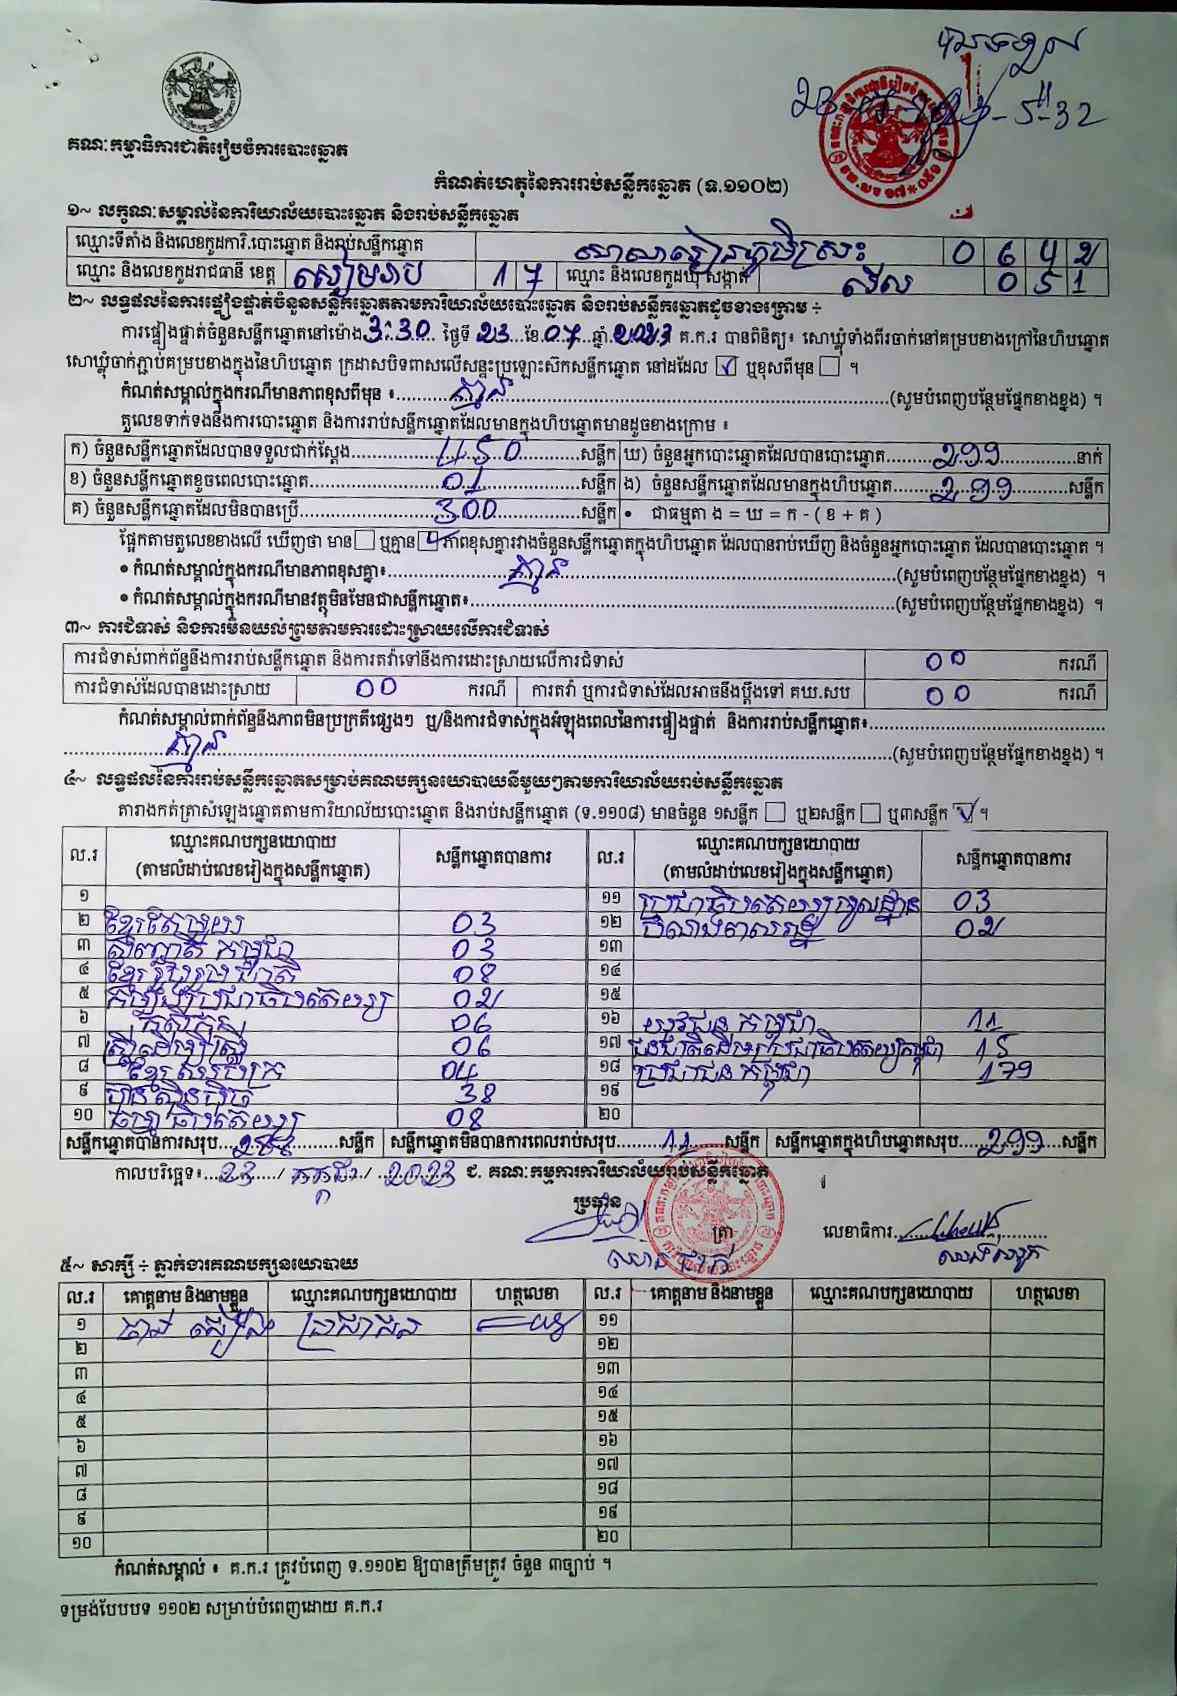 គណៈកម្មាធិការជាតិរៀបចំការបោះឆ្នោត
កំណត់ហេតុនៃការរាប់សន្លឹកឆ្នោត (ទ.១១០២)
១~ លក្ខណៈសម្គាល់នៃការិយាល័យបោះឆ្នោត និងរាប់សន្លឹកឆ្នោត
ឈ្មោះទីតាំង និងលេខកូដការិ.បោះឆ្នោត និងរាប់សន្លឹកឆ្នោត សាលារៀនភូមិស្រះ 0 6 4 2
ឈ្មោះ និងលេខកូដរាជធានី ខេត្ត សៀមរាប 1 7 ឈ្មោះ និងលេខកូដឃុំ សង្កាត់ 0 5 1
២~ លទ្ធផលនៃការផ្ទៀងផ្ទាត់ចំនួនសន្លឹកឆ្នោតតាមការិយាល័យបោះឆ្នោត និងរាប់សន្លឹកឆ្នោតដូចខាងក្រោម ÷
ការផ្ទៀងផ្ទាត់ចំនួនសន្លឹកឆ្នោតនៅម៉ោង 3:30 ថ្ងៃទី 23 ខែ 07 ឆ្នាំ 2023 គ.ក.រ បានពិនិត្យ៖ សោឃ្លុំទាំងពីរចាក់នៅគម្របខាងក្រៅនៃហិបឆ្នោត
សោឃ្លុំចាក់ភ្ជាប់គម្របខាងក្នុងនៃហិបឆ្នោត ក្រដាសបិទពាសលើសន្ទះប្រឡោះស៊កសន្លឹកឆ្នោត នៅដដែល ☑ ឬខុសពីមុន ☐ ។
កំណត់សម្គាល់ក្នុងករណីមានភាពខុសពីមុន ៖ គ្មាន (សូមបំពេញបន្ថែមផ្នែកខាងខ្នង) ។
តួលេខទាក់ទងនឹងការបោះឆ្នោត និងការរាប់សន្លឹកឆ្នោតដែលមានក្នុងហិបឆ្នោតមានដូចខាងក្រោម ៖
ក) ចំនួនសន្លឹកឆ្នោតដែលបានទទួលជាក់ស្តែង សន្លឹក ឃ) ចំនួនអ្នកបោះឆ្នោតដែលបានបោះឆ្នោត 299 នាក់
ខ) ចំនួនសន្លឹកឆ្នោតខូចពេលបោះឆ្នោត 01 សន្លឹក ង) ចំនួនសន្លឹកឆ្នោតដែលមានក្នុងហិបឆ្នោត 299 សន្លឹក
គ) ចំនួនសន្លឹកឆ្នោតដែលមិនបានប្រើ 300 សន្លឹក • ជាធម្មតា ង = ឃ = ក - ( ខ + គ )
ផ្អែកតាមតួលេខខាងលើ ឃើញថា មាន ☐ ឬគ្មាន ☑ ភាពខុសគ្នារវាងចំនួនសន្លឹកឆ្នោតក្នុងហិបឆ្នោត ដែលបានរាប់ឃើញ និងចំនួនអ្នកបោះឆ្នោត ដែលបានបោះឆ្នោត ។
• កំណត់សម្គាល់ក្នុងករណីមានភាពខុសគ្នា៖ គ្មាន (សូមបំពេញបន្ថែមផ្នែកខាងខ្នង) ។
• កំណត់សម្គាល់ក្នុងករណីមានវត្ថុមិនមែនជាសន្លឹកឆ្នោត៖ (សូមបំពេញបន្ថែមផ្នែកខាងខ្នង) ។
៣~ ការជំទាស់ និងការមិនយល់ព្រមតាមការដោះស្រាយលើការជំទាស់
ការជំទាស់ពាក់ព័ន្ធនឹងការរាប់សន្លឹកឆ្នោត និងការតវ៉ាទៅនឹងការដោះស្រាយលើការជំទាស់ 00 ករណី
ការជំទាស់ដែលបានដោះស្រាយ 00 ករណី ការតវ៉ា ឬការជំទាស់ដែលអាចនឹងប្តឹងទៅ គឃ.សប 00 ករណី
កំណត់សម្គាល់ពាក់ព័ន្ធនឹងភាពមិនប្រក្រតីផ្សេងៗ ឬ/និងការជំទាស់ក្នុងអំឡុងពេលនៃការផ្ទៀងផ្ទាត់ និងការរាប់សន្លឹកឆ្នោត៖
គ្មាន (សូមបំពេញបន្ថែមផ្នែកខាងខ្នង) ។
៤~ លទ្ធផលនៃការរាប់សន្លឹកឆ្នោតសម្រាប់គណបក្សនយោបាយនីមួយៗតាមការិយាល័យរាប់សន្លឹកឆ្នោត
តារាងកត់ត្រាសំឡេងឆ្នោតតាមការិយាល័យបោះឆ្នោត និងរាប់សន្លឹកឆ្នោត (ទ.១១០៨) មានចំនួន ១សន្លឹក ☐ ឬ២សន្លឹក ☐ ឬ៣សន្លឹក ☑ ។
ល.រ ឈ្មោះគណបក្សនយោបាយ (តាមលំដាប់លេខរៀងក្នុងសន្លឹកឆ្នោត) សន្លឹកឆ្នោតបានការ ល.រ ឈ្មោះគណបក្សនយោបាយ (តាមលំដាប់លេខរៀងក្នុងសន្លឹកឆ្នោត) សន្លឹកឆ្នោតបានការ
១ ១១ ប្រជាធិបតេយ្យមូលដ្ឋាន 03
២ ខ្មែរតែមួយ 03 ១២ 02
៣ កម្ពុជា 03 ១៣
៤ ខ្មែររួបរួមជាតិ 08 ១៤
៥ កម្លាំងប្រជាធិបតេយ្យ 02 ១៥
៦ កសិករ 06 ១៦ យុវជនកម្ពុជា 11
៧ ស្ត្រីដើម្បីស្ត្រី 06 ១៧ ជនជាតិដើមប្រជាធិបតេយ្យកម្ពុជា 15
៨ ខ្មែរ 04 ១៨ ប្រជាជនកម្ពុជា 179
៩ ហ្វ៊ុនស៊ិនប៉ិច 38 ១៩
១០ ធម្មាធិបតេយ្យ 08 ២០
សន្លឹកឆ្នោតបានការសរុប 288 សន្លឹក សន្លឹកឆ្នោតមិនបានការពេលរាប់សរុប 11 សន្លឹក សន្លឹកឆ្នោតក្នុងហិបឆ្នោតសរុប 299 សន្លឹក
កាលបរិច្ឆេទ៖ 23 / កក្កដា / 2023 ជ. គណៈកម្មការការិយាល័យរាប់សន្លឹកឆ្នោត
ប្រធាន
ត្រា លេខាធិការ
៥~ សាក្សី ÷ ភ្នាក់ងារគណបក្សនយោបាយ
ល.រ គោត្តនាម និងនាមខ្លួន ឈ្មោះគណបក្សនយោបាយ ហត្ថលេខា ល.រ គោត្តនាម និងនាមខ្លួន ឈ្មោះគណបក្សនយោបាយ ហត្ថលេខា
១ ប្រជាជន ១១
២ ១២
៣ ១៣
៤ ១៤
៥ ១៥
៦ ១៦
៧ ១៧
៨ ១៨
៩ ១៩
១០ ២០
កំណត់សម្គាល់ ៖ គ.ក.រ ត្រូវបំពេញ ទ.១១០២ ឱ្យបានត្រឹមត្រូវ ចំនួន ៣ច្បាប់ ។
ទម្រង់បែបបទ ១១០២ សម្រាប់បំពេញដោយ គ.ក.រ